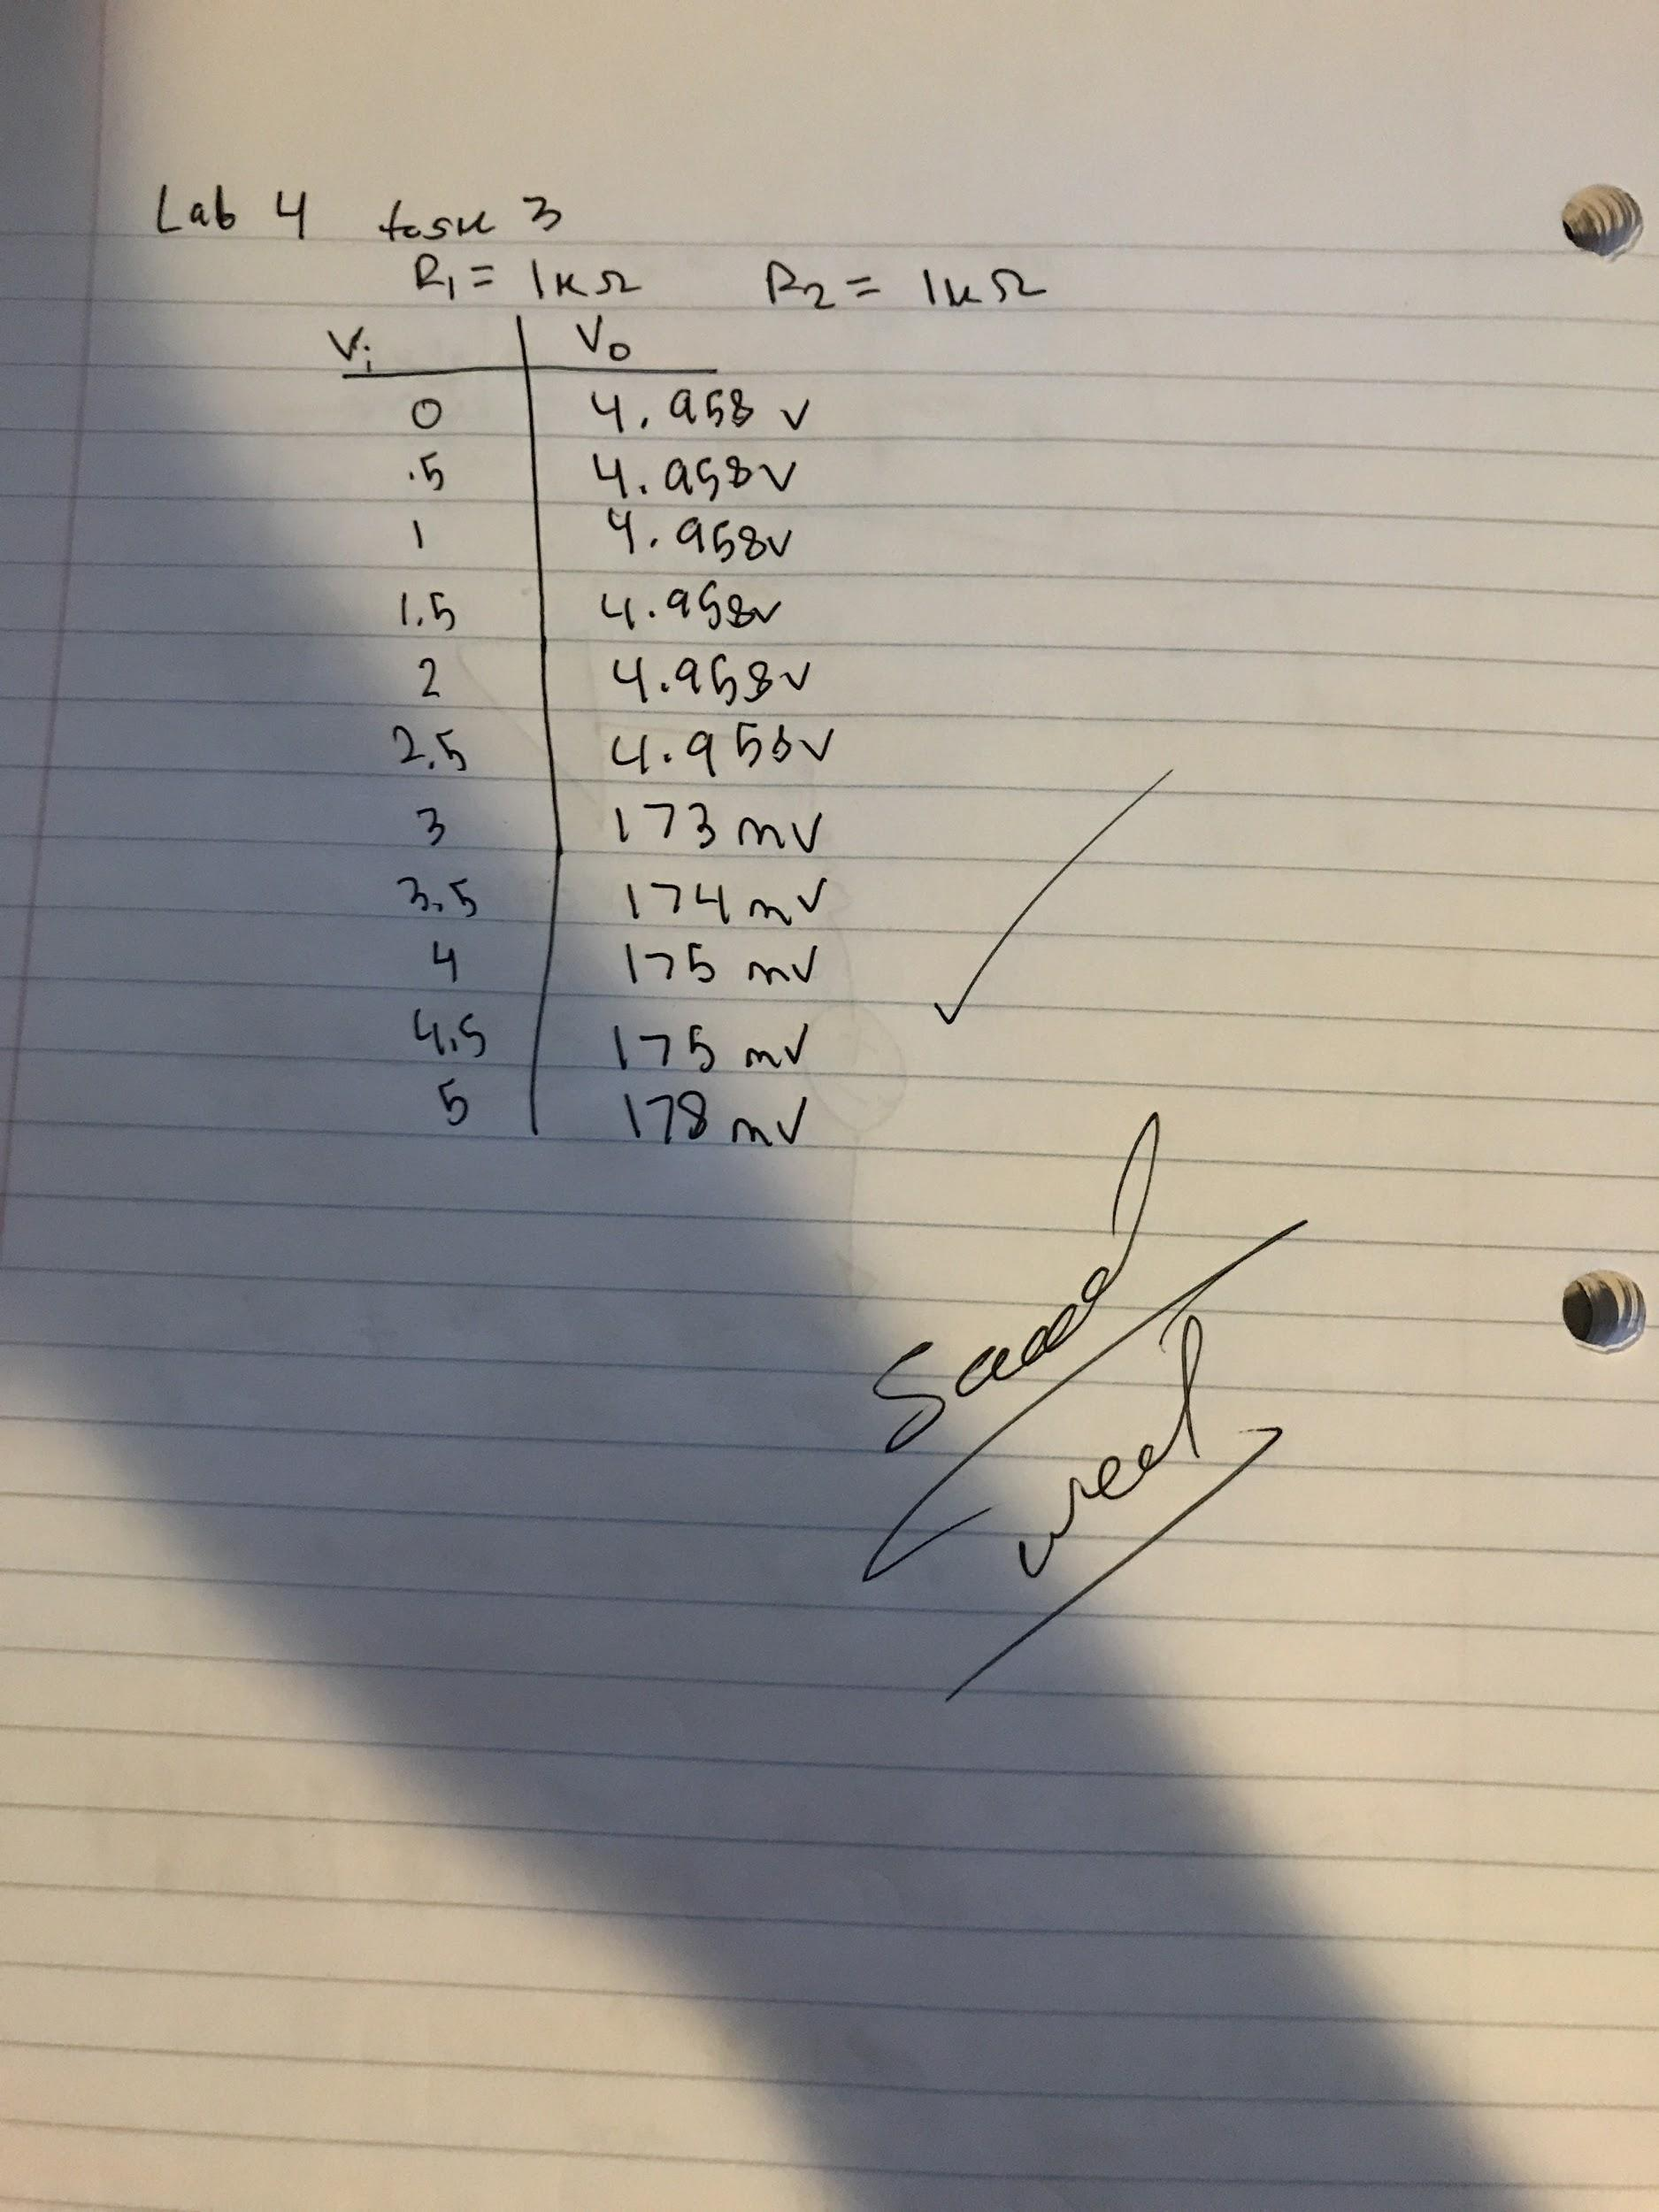 Lab 4 task 3
R₁ = 1kΩ R₂ = 1kΩ
Vi Vo
0 4.958 v
.5 4.958v
1 4.958v
1.5 4.958v
2 4.958v
2.5 4.958v
3 173 mV
3.5 174 mV
4 175 mV
4.5 175 mV
5 178 mV